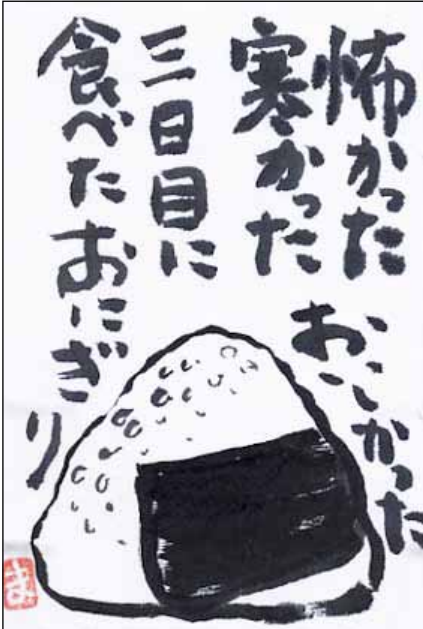 怖かった
寒かった
三日目に
食べたおにぎり
おいしかった
ま